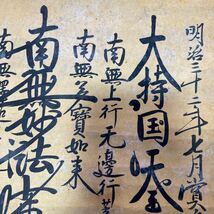 明治三十三年七月
大持国天王
南無上行无邊行菩
南無多寶如来
南無妙法蓮
南無釋